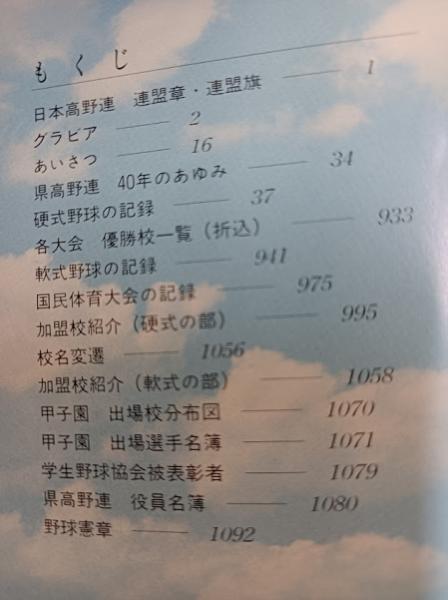 もくじ
日本高野連 連盟章・連盟旗 —— 1
グラビア —— 2
あいさつ —— 16
県高野連 40年のあゆみ —— 34
硬式野球の記録 —— 37
各大会 優勝校一覧（折込） —— 933
軟式野球の記録 —— 941
国民体育大会の記録 —— 975
加盟校紹介（硬式の部） —— 995
校名変遷 —— 1056
加盟校紹介（軟式の部） —— 1058
甲子園 出場校分布図 —— 1070
甲子園 出場選手名簿 —— 1071
学生野球協会被表彰者 —— 1079
県高野連 役員名簿 —— 1080
野球憲章 —— 1092